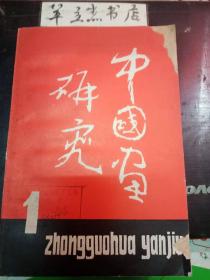 羊立杰书店
中国画
研究
1
zhongguohua yanjiu